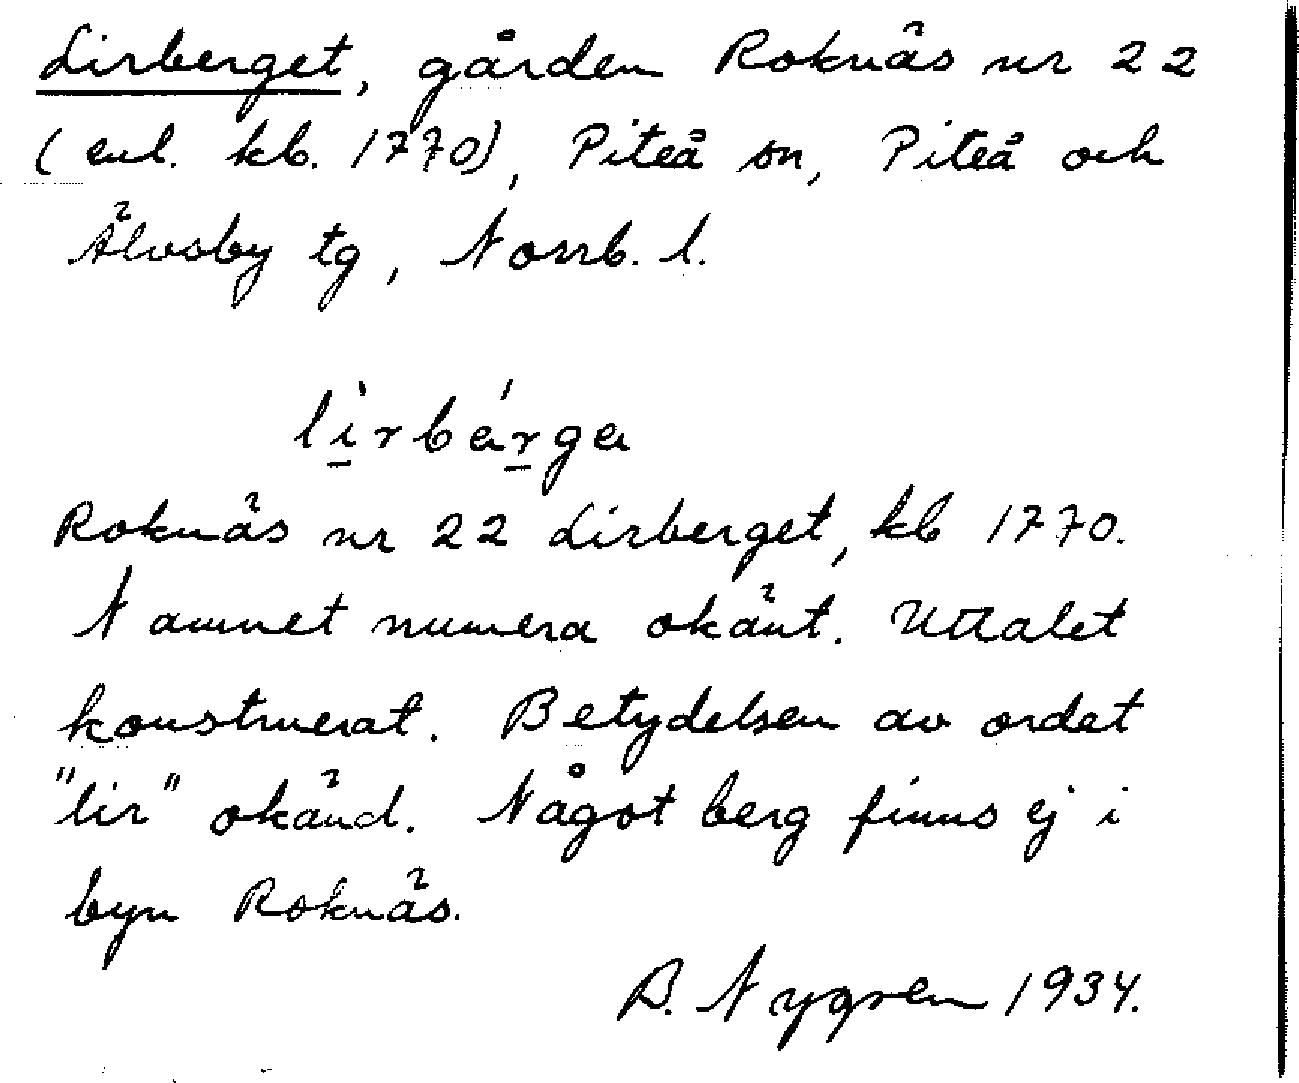 Lirberget, gården Roknäs nr 22
(enl. kb. 1770), Piteå sn, Piteå och
Älvsby tg, Norrb. l.
li̠rbár̠ga
Roknäs nr 22 Lirberget, kb 1770.
Namnet numera okänt. Uttalet
konstruerat. Betydelsen av ordet
"lir" okänd. Något berg finns ej i
byn Roknäs.
B. Nygren 1934.